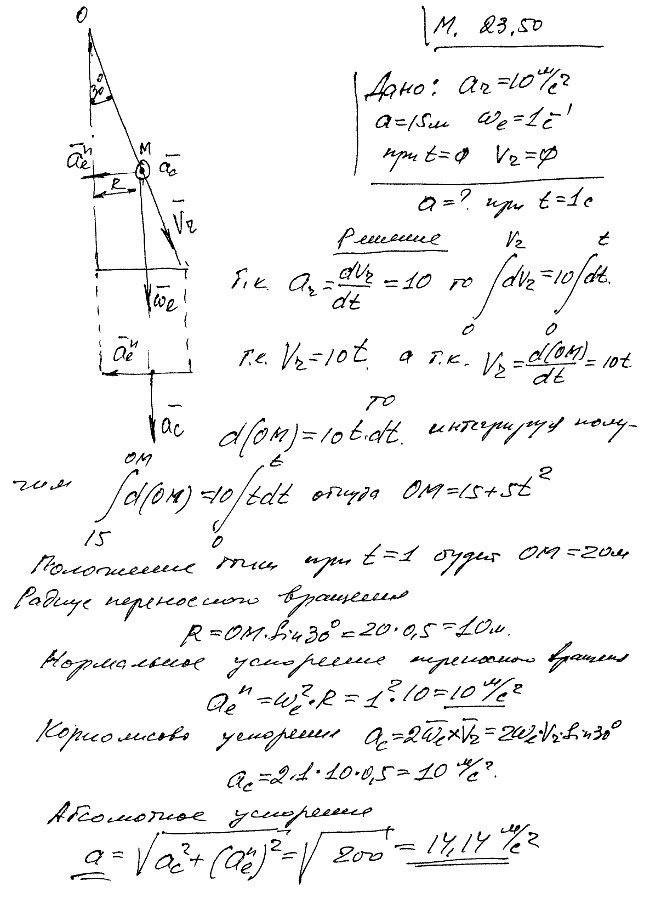 М. 23.50
Дано: a₂=10 м/с²
a=15м ωe=1с⁻¹
при t=0 V₂=0
a=? при t=1с
O
30°
M
āeⁿ
āc
R
V̄₂
ω̄e
āeⁿ
āc
Решение
т.к. a₂=dV₂/dt=10 то ∫₀^V₂ dV₂=10∫₀^t dt.
т.е. V₂=10t. а т.к. V₂=d(OM)/dt=10t
то
d(OM)=10t·dt. интегрируя полу-
чим ∫₁₅^OM d(OM)=10∫₀^t tdt откуда OM=15+5t²
Положение точки при t=1 будет OM=20м
Радиус переносного вращения
R=OM·Sin30°=20·0,5=10м.
Нормальное ускорение переносного вращения
aeⁿ=ωe²·R=1²·10=10 м/с²
Кориолисово ускорение ac=2ω̄e×V̄₂=2ωe·V₂·Sin30°
ac=2·1·10·0,5=10 м/с².
Абсолютное ускорение
a=√(ac²+(aeⁿ)²)=√200=14,14 м/с²